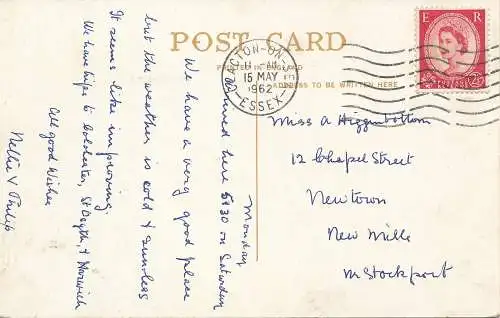 POST CARD
PRINTED IN ENGLAND
ADDRESS TO BE WRITTEN HERE
CTON-ON-
15 MAY
1962
ESSEX
E R
POSTAGE
REVENUE
2½D
Monday
Arrived here 5.30 on Saturday
We have a very good place
but the weather is cold & sunless
It seems like improving.
We have trips to Colchester, St Osyth, & Harwich
All good wishes
Nellie V Philip
Miss A Higginbottom
12 Chapel Street
Newtown
New Mills
Nr Stockport